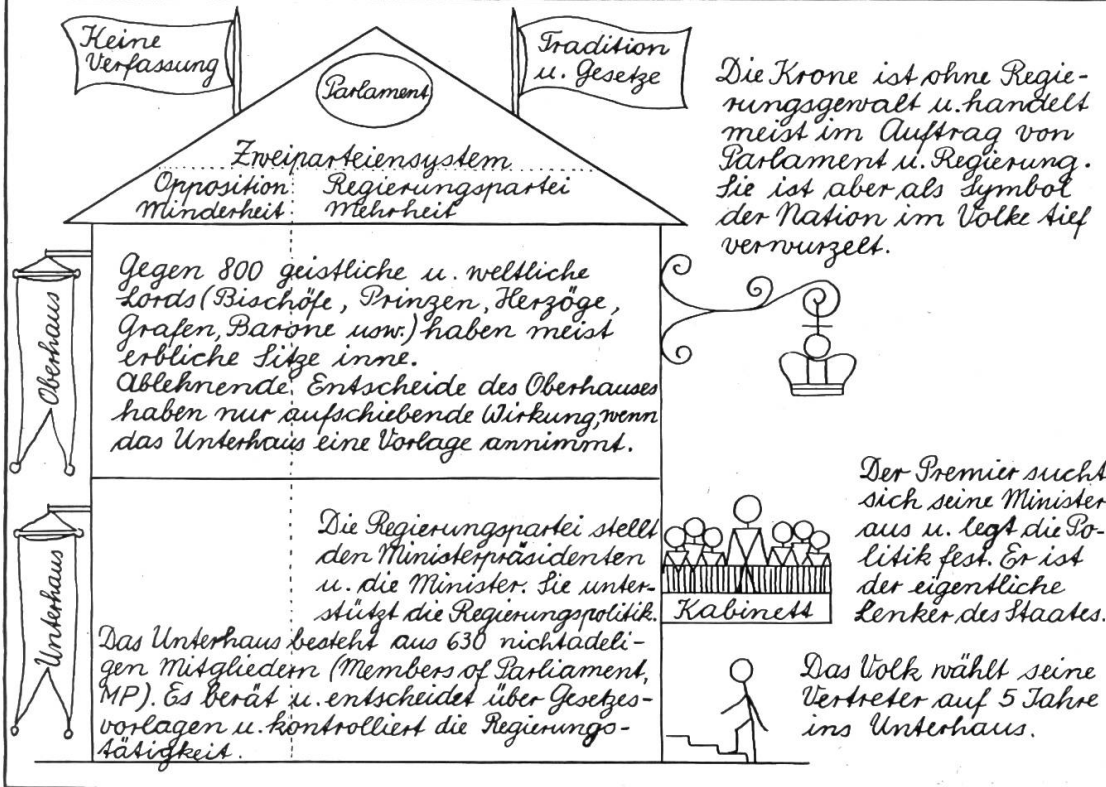 Keine
Verfassung
Tradition
u. Gesetze
Parlament
Zweiparteiensystem
Opposition Regierungspartei
Minderheit Mehrheit
Die Krone ist ohne Regie-
rungsgewalt u. handelt
meist im Auftrag von
Parlament u. Regierung.
Sie ist aber als Symbol
der Nation im Volke tief
verwurzelt.
Oberhaus
Gegen 800 geistliche u. weltliche
Lords (Bischöfe, Prinzen, Herzöge,
Grafen, Barone usw.) haben meist
erbliche Sitze inne.
Ablehnende Entscheide des Oberhauses
haben nur aufschiebende Wirkung, wenn
das Unterhaus eine Vorlage annimmt.
Unterhaus
Die Regierungspartei stellt
den Ministerpräsidenten
u. die Minister. Sie unter-
stützt die Regierungspolitik.
Das Unterhaus besteht aus 630 nichtadeli-
gen Mitgliedern (Members of Parliament,
MP). Es berät u. entscheidet über Gesetzes-
vorlagen u. kontrolliert die Regierungs-
tätigkeit.
Kabinett
Der Premier sucht
sich seine Minister
aus u. legt die Po-
litik fest. Er ist
der eigentliche
Lenker des Staates.
Das Volk wählt seine
Vertreter auf 5 Jahre
ins Unterhaus.